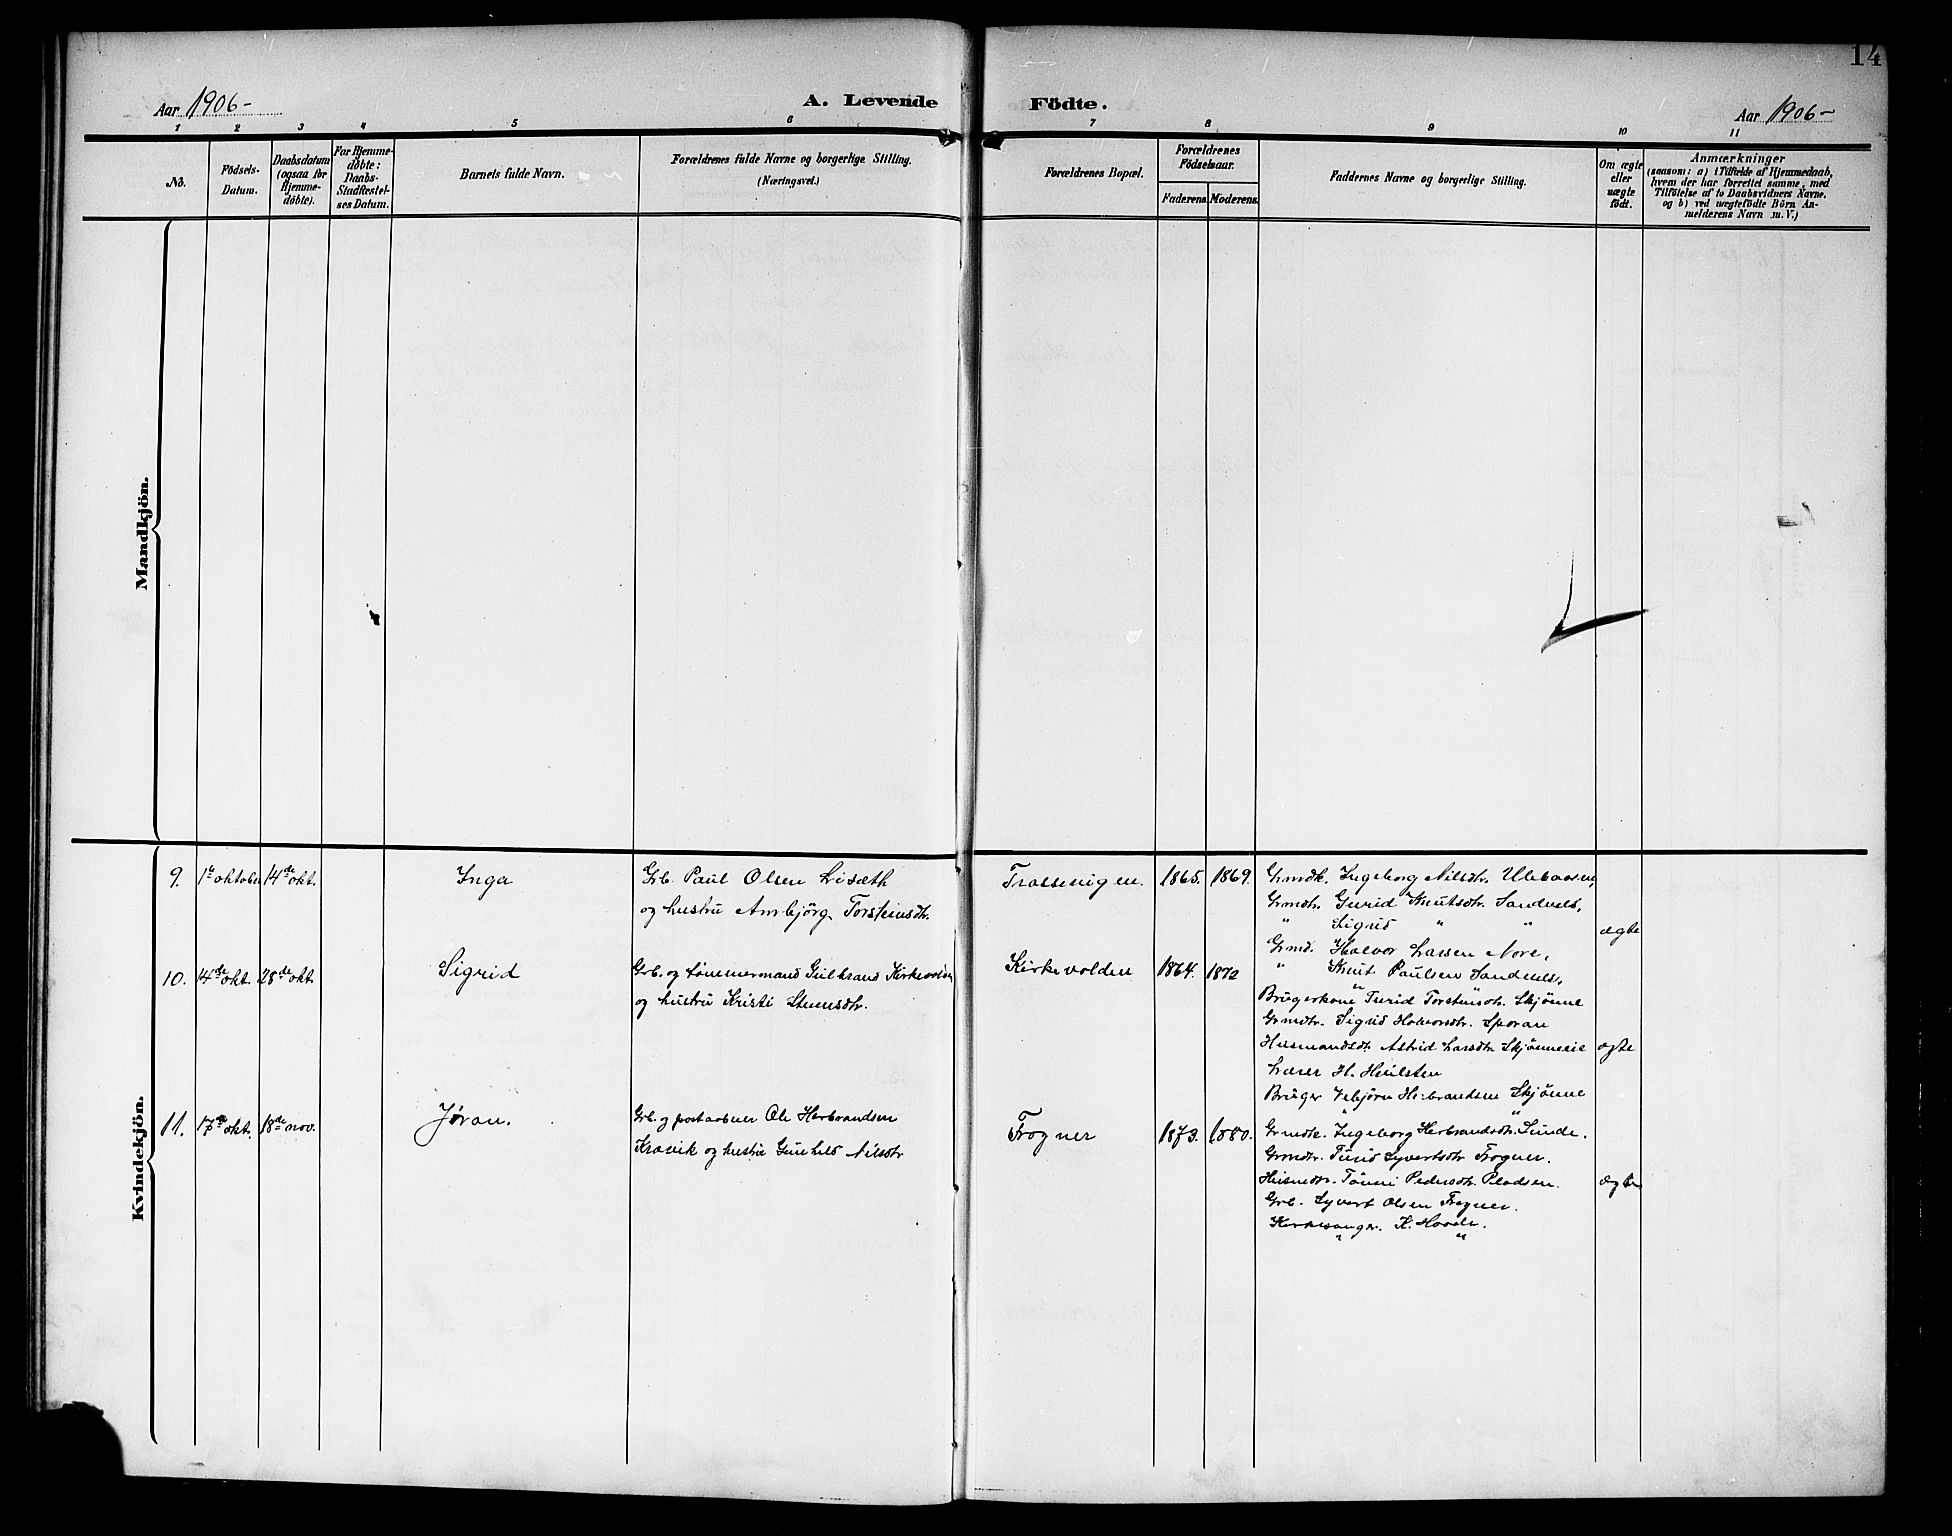 14
Aar 1906-
A. Levende Födte.
Aar 1906-
1 2 3 4 5 6 7 8 9 10 11
No.
Födsels-
Datum.
Daabsdatum
(ogsaa for
Hjemme-
döbte).
For Hjemme-
döbte:
Daabs-
Stadfæstel-
ses Datum.
Barnets fulde Navn.
Forældrenes fulde Navne og borgerlige Stilling.
(Næringsvei.)
Forældrenes Bopæl.
Forældrenes
Födselsaar.
Faderens. Moderens.
Faddernes Navne og borgerlige Stilling.
Om ægte
eller
uægte
födt.
Anmærkninger
(saasom: a) i Tilfælde af Hjemmedaab,
hvem der har forrettet samme, med
Tilföielse af to Daabsvidners Navne,
og b) ved uægtefödte Börn An-
melderens Navn m. V.)
Mandkjön.
Kvindekjön.
9. 1te oktober 14de okt.
Inga
Grb. Paul Olsen Liseth
og hustru Ambjörg Torsteinsdtr.
1865. 1869.
Grmdk. Ingeborg Nilsdtr.
Grmdtr. Gurid Knutsdtr. Sandnes,
" Sigrid " "
Grmd. Halvor Larsen Nore,
" Knut Paulsen Sandnes,
ægte
10. 14de okt. 28de okt.
Sigrid
Grb. og tömmermand Gulbrand Kirkevolden
og hustru Kristi Steensdtr.
Kirkevolden
1864. 1872
Brugerkone Turid Torsteinsdtr. Skjönne
Grmdtr. Sigrid Halvorsdtr. Sporan
Husmandsdtr. Astrid Larsdtr.
Lærer H.
Bruger Vebjörn Herbrandsen Skjönne
ægte
11. 17de okt. 18de nov.
Jøran.
Grb. og postaabner Ole Herbrandsen
Kravik og hustru Gunhild Nilsdtr
Frogner
1873. 1880.
Grmdk. Ingeborg Herbrandsdtr. Sunde.
Grmdtr. Turid Syvertsdtr Frogner.
Husmdtr. Tönni Pedersdtr. Pladsen.
Grb. Syvert Olsen Frogner.
Kirkesanger. K.
ægte